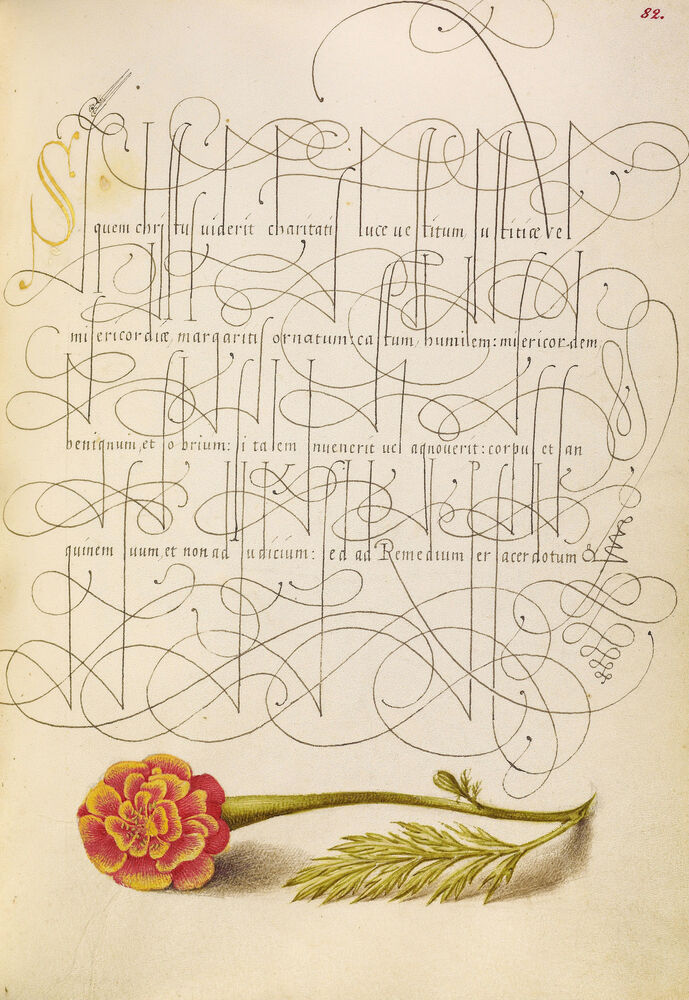 82.
Si quem christus viderit charitatis luce vestitum iustitiæ vel
misericordiæ, margaritis ornatum: castum, humilem: misericordem,
benignum, et sobrium: si talem invenerit vel agnoverit: corpus et san
guinem suum, et non ad iudicium: sed ad Remedium per sacerdotum &